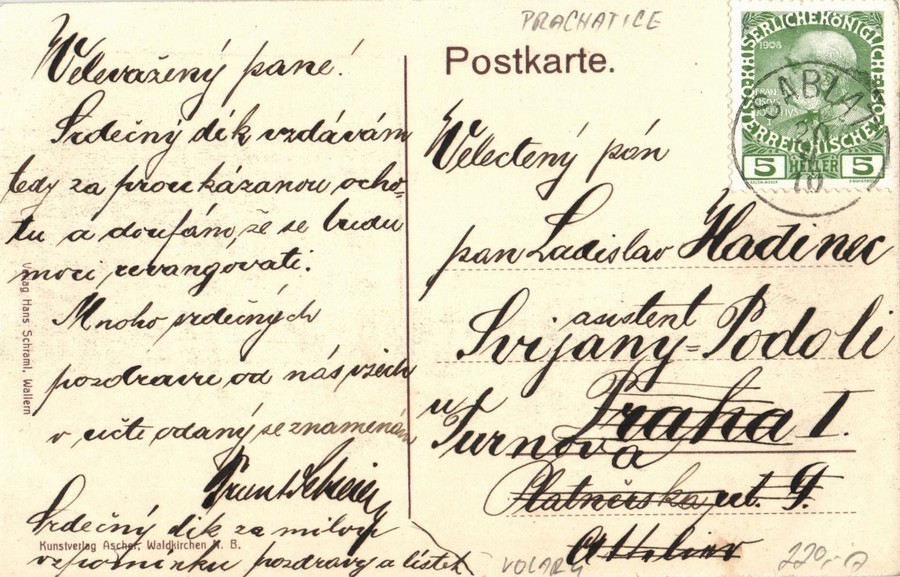 PRACHATICE
Postkarte.
KAISERLICHE KÖNIGLICHE
1908
ÖSTERREICHISCHE
5 HELLER 5
SABLA
20
10
Velevažený pane!
Srdečný dík vzdávám
tedy za proukázanou ocho-
tu a doufám, že se budu
moci revangovati.
Mnoho srdečných
pozdravů od nás všech
v úctě odaný se znamenám
Srdečný dík za milou
vzpomínku pozdravy a lístek
Velectený pán
pan Ladislav Hadinec
asistent
Svijany-Podolí
u Turnova
Praha I.
Platnéřská ul. 9.
Verlag Hans Schraml, Wallern
Kunstverlag Ascher, Waldkirchen N. B.
VOLARY
220,-